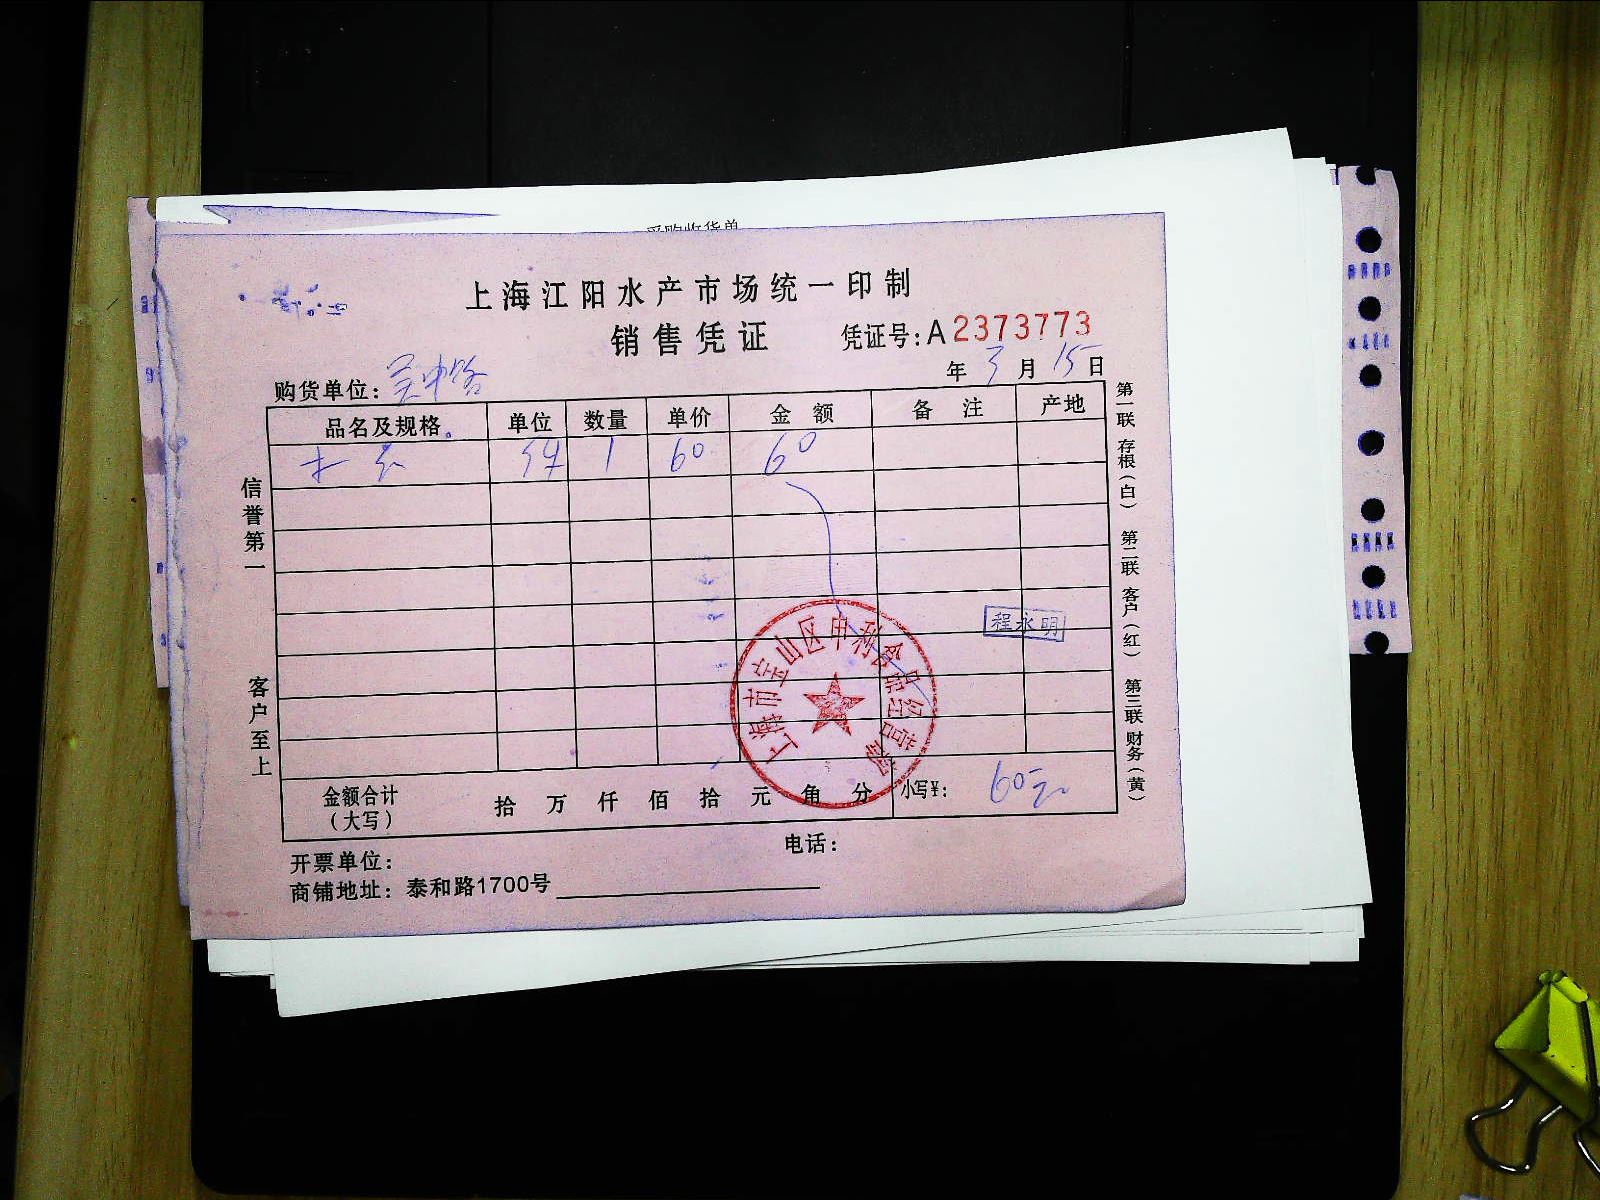 采购收货单
上海江阳水产市场统一印制
销售凭证
凭证号:A 2373773
年 3 月 15 日
购货单位: 吴中路
品名及规格 单位 数量 单价 金额 备注 产地
件 1 60 60
信誉第一
客户至上
第一联 存根(白) 第二联 客户(红) 第三联 财务(黄)
程永明
上海市宝山区申利食品经营部
金额合计 拾 万 仟 佰 拾 元 角 分 小写¥: 60元
(大写)
电话:
开票单位:
商铺地址: 泰和路1700号